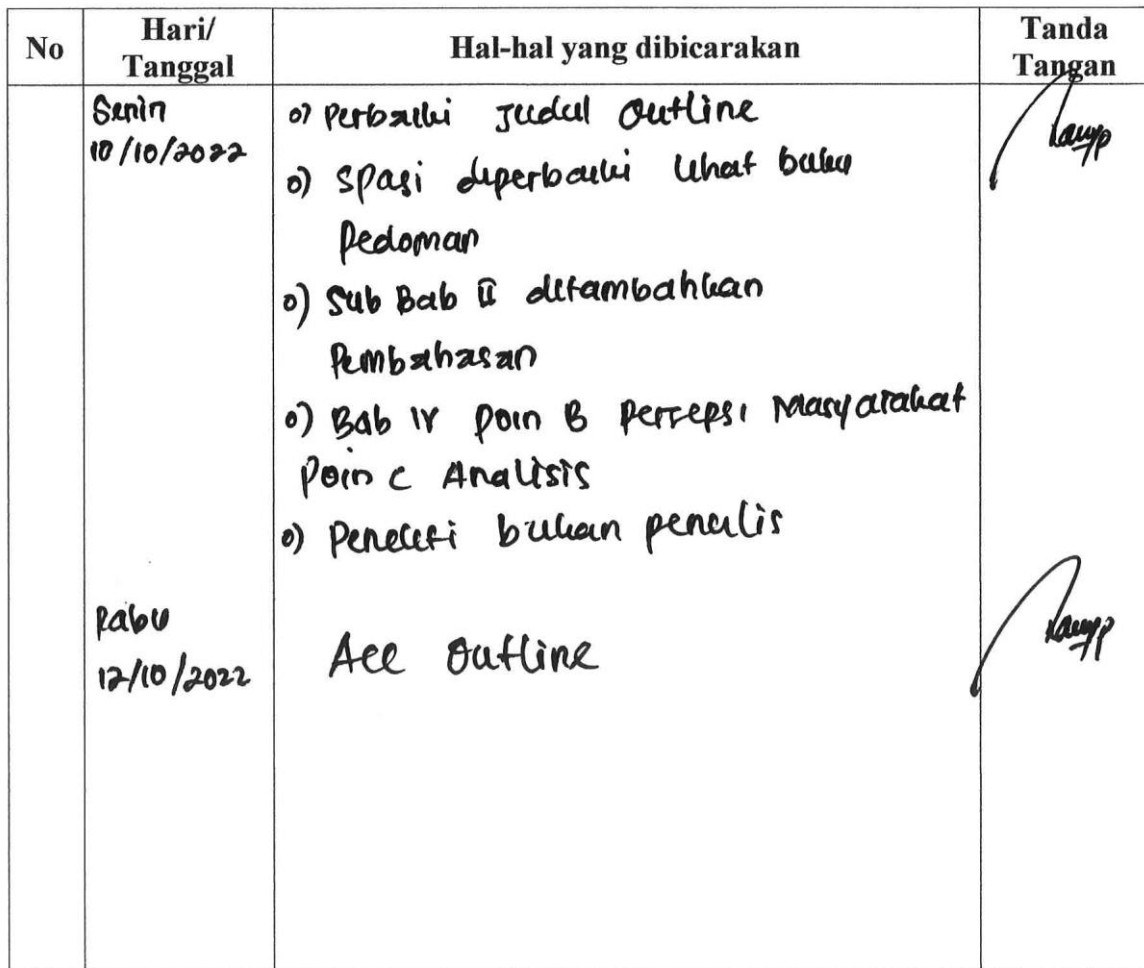 No Hari/ Tanggal Hal-hal yang dibicarakan Tanda Tangan
Senin
10/10/2022
o) Perbaiki Judul Outline
o) Spasi diperbaiki lihat buku
Pedoman
o) Sub Bab II ditambahkan
Pembahasan
o) Bab IV Poin B Persepsi Masyarakat
Poin C Analisis
o) Peneliti bukan penulis
Rabu
12/10/2022
Acc Outline